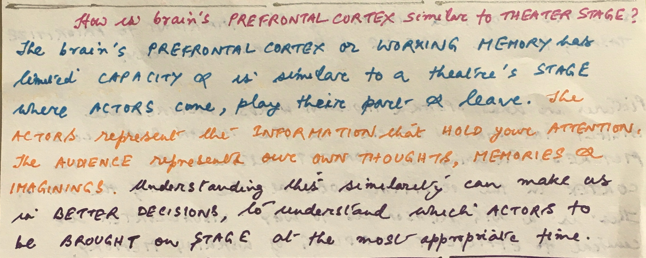 How is brain's PREFRONTAL CORTEX similar to THEATER STAGE?
The brain's PREFRONTAL CORTEX or WORKING MEMORY has
limited CAPACITY & is similar to a theatre's STAGE
where ACTORS come, play their part & leave. The
ACTORS represent the INFORMATION that HOLD your ATTENTION.
The AUDIENCE represents our OWN THOUGHTS, MEMORIES &
IMAGININGS. Understanding this similarity can make us
in BETTER DECISIONS, to understand which ACTORS to
be BROUGHT on STAGE at the most appropriate time.